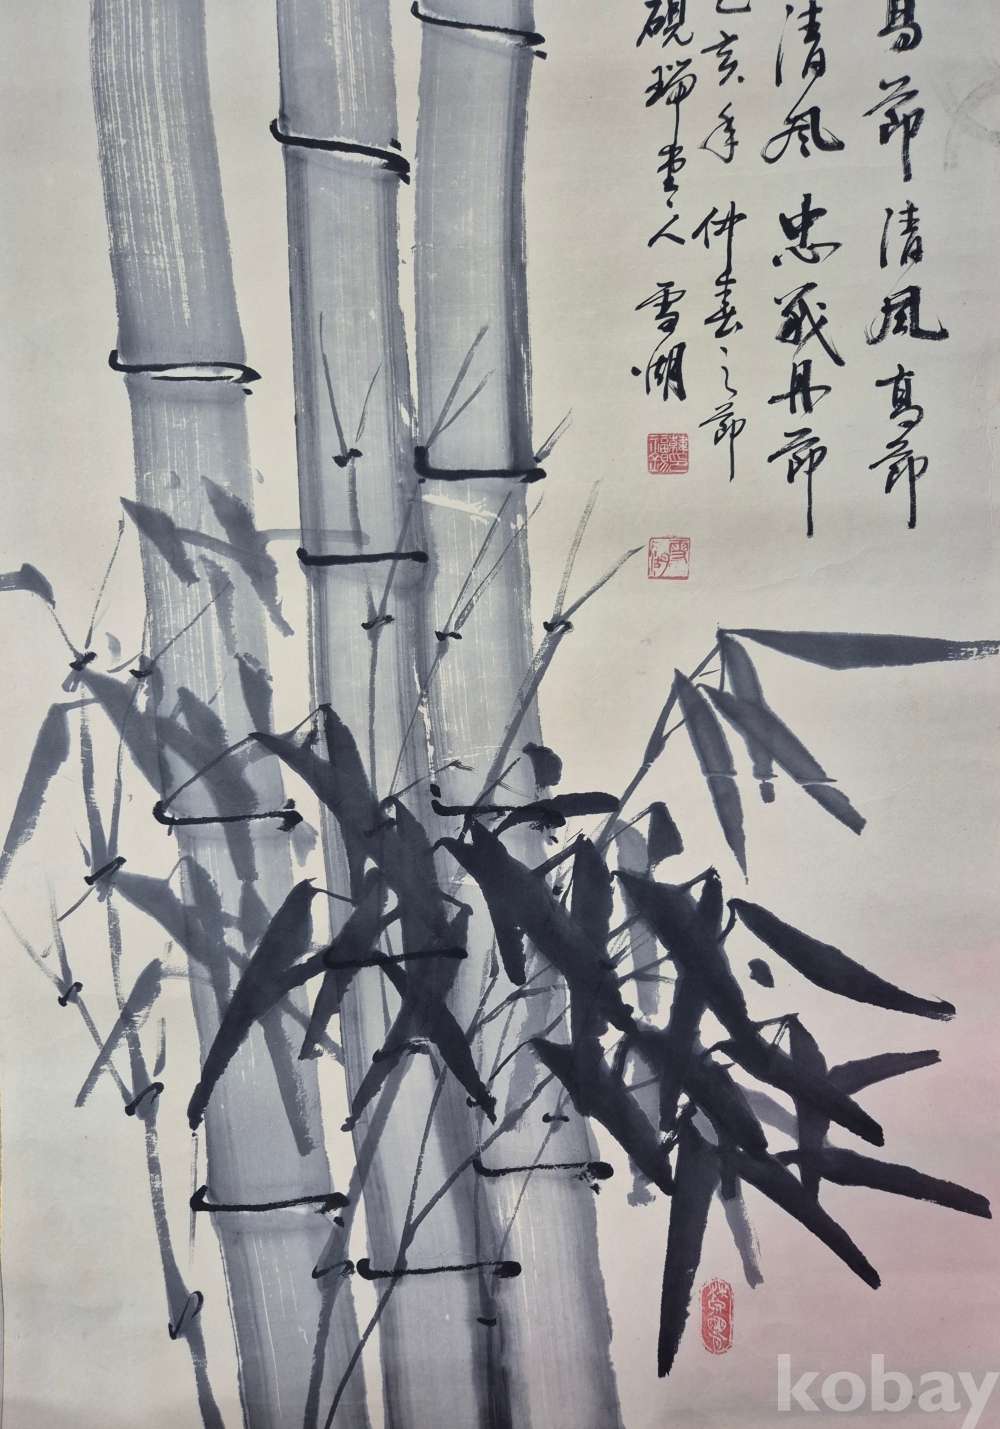 高節清風高節
清風忠義丹節
己亥年仲春之節
硯瑞堂主人雪湖
雪湖
kobay